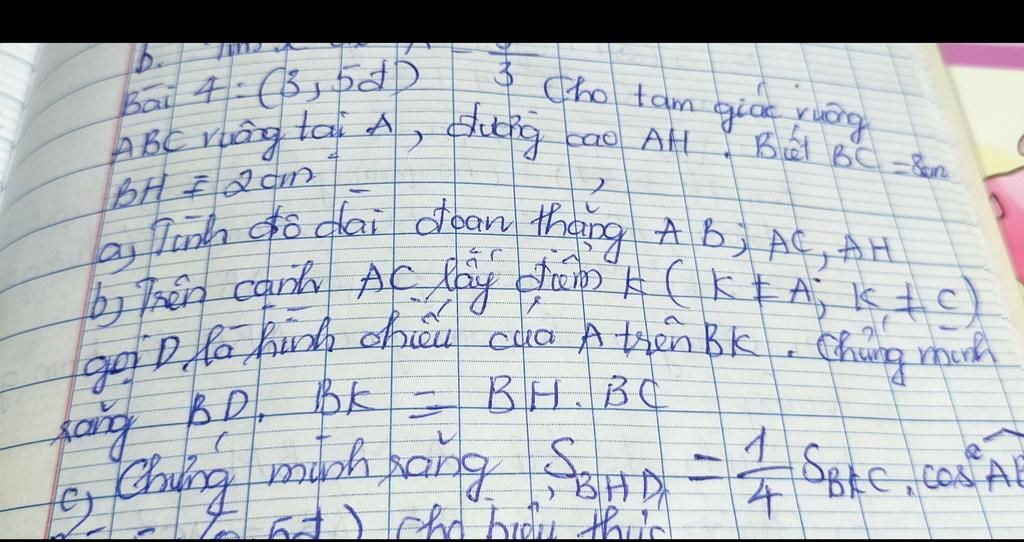 b.
3
Bài 4: (3,5đ) Cho tam giác vuông
ABC vuông tại A, đường cao AH. Biết BC = 8cm
BH = 2cm
a) Tính độ dài đoạn thẳng AB; AC, AH
b) Trên cạnh AC lấy điểm K (K ≠ A; K ≠ C)
gọi D là hình chiếu của A trên BK. Chứng minh
rằng BD. BK = BH. BC
c) Chứng minh rằng S_BHD = 1/4 S_BKC. cos² AB
5đ) Cho biểu thức